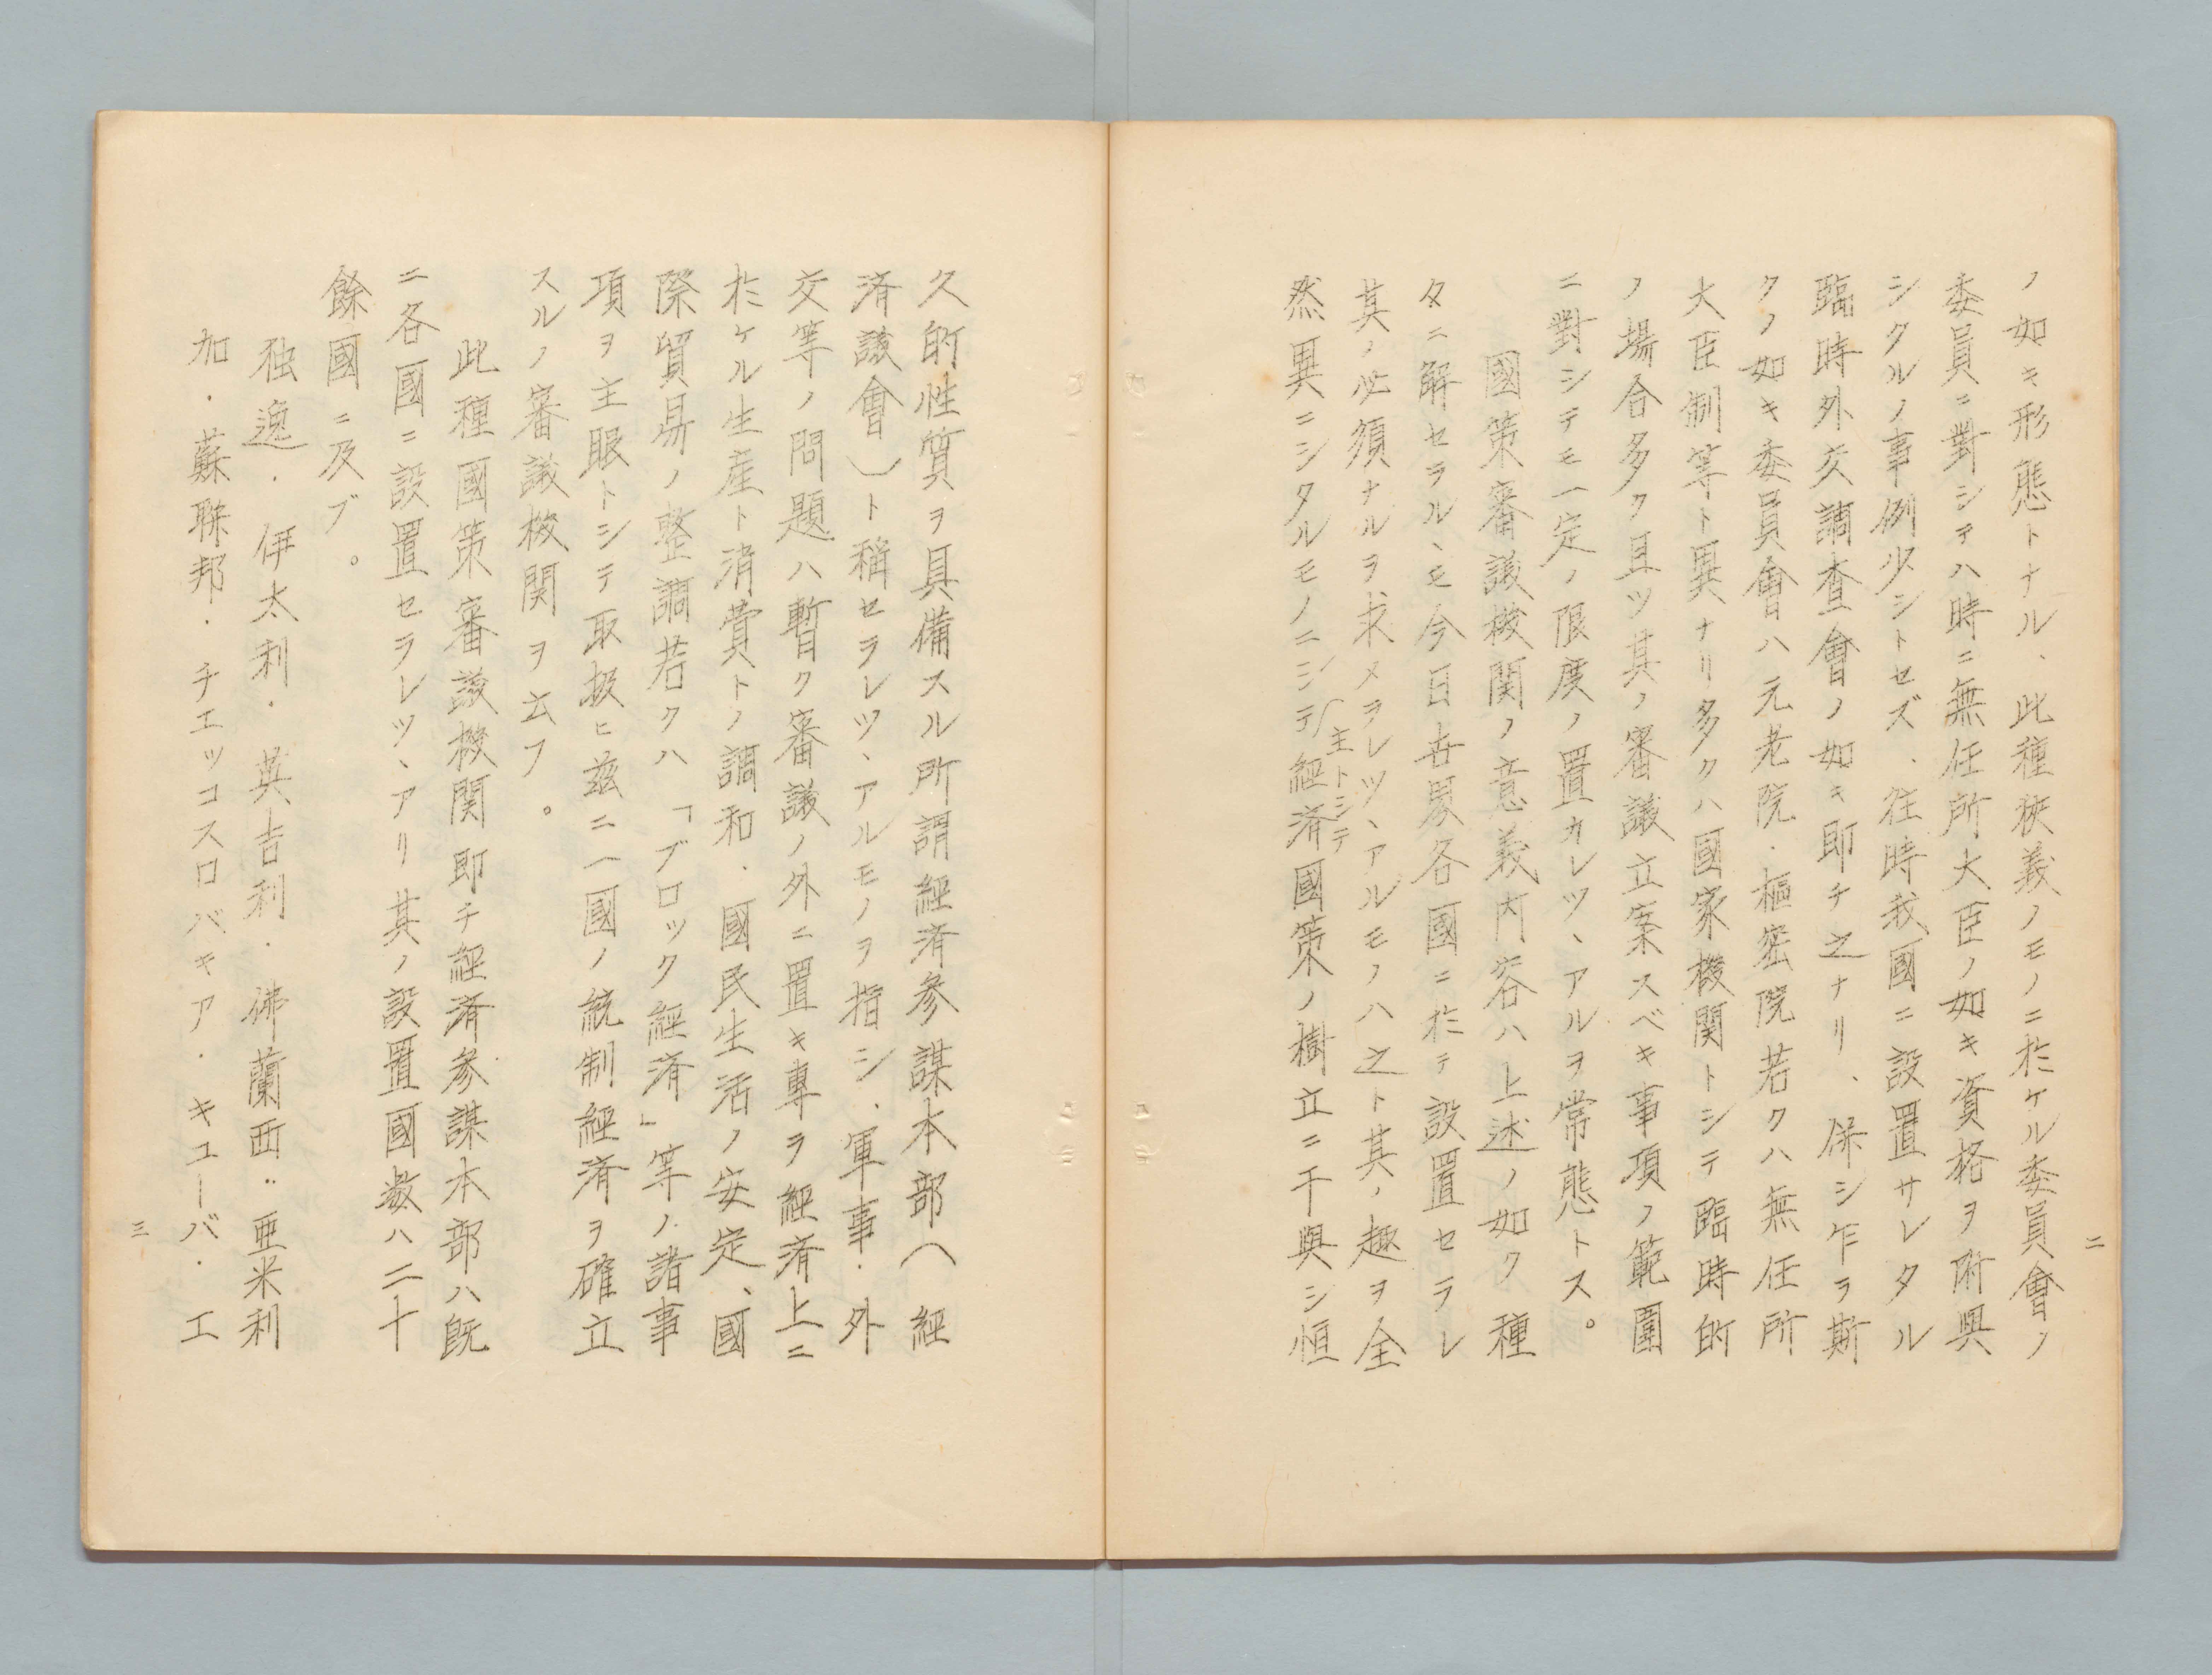 二
ノ如キ形態トナル、此種狹義ノモノニ於ケル委員會ノ
委員ニ對シテハ時ニ無任所大臣ノ如キ資格ヲ附與
シタルノ事例少シトセズ、往時我國ニ設置サレタル
臨時外交調査會ノ如キ即チ之ナリ、併シ乍ラ斯
クノ如キ委員會ハ元老院・樞密院若クハ無任所
大臣制等ト異ナリ多クハ國家機関トシテ臨時的
ノ場合多ク且ツ其ノ審議立案スベキ事項ノ範圍
ニ對シテモ一定ノ限度ノ置カレツヽアルヲ常態トス。
國策審議機関ノ意義内容ハ上述ノ如ク種
々ニ解セラルヽモ今日世界各國ニ於テ設置セラレ
其ノ必須ナルヲ求メラレツヽアルモノハ之ト其ノ趣ヲ全
然異ニシタルモノニシテ主トシテ經濟國策ノ樹立ニ干與シ恒
久的性質ヲ具備スル所謂經済参謀本部(經
済議會)ト稱セラレツヽアルモノヲ指シ、軍事・外
交等ノ問題ハ暫ク審議ノ外ニ置キ專ラ經済上ニ
於ケル生産ト消費トノ調和・國民生活ノ安定、國
際貿易ノ整調若クハ「ブロック經済」等ノ諸事
項ヲ主眼トシテ取扱ヒ茲ニ一國ノ統制經済ヲ確立
スルノ審議機関ヲ云フ。
此種國策審議機関即チ經済参謀本部ハ既
ニ各國ニ設置セラレツヽアリ其ノ設置國数ハ二十
餘國ニ及ブ。
独逸・伊太利・英吉利・佛蘭西・亜米利
加・蘇聯邦・チエッコスロバキア・キューバ・エ
三